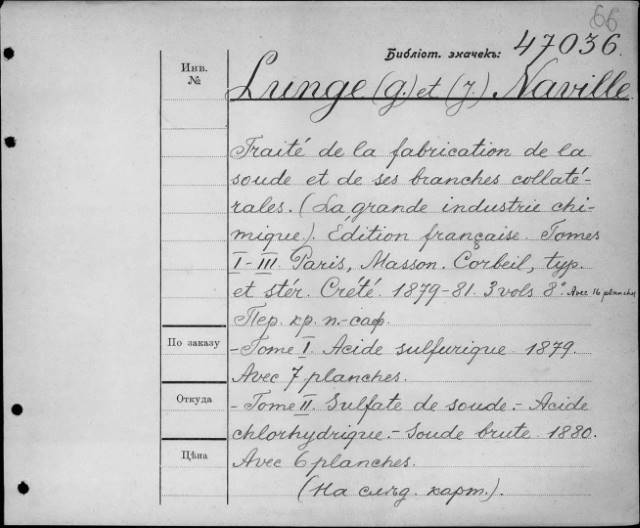 66
Библіот. значекъ: 47036.
Инв.
№
Lunge (G.) et (J.) Naville
Traité de la fabrication de la
soude et de ses branches collaté-
rales. (La grande industrie chi-
mique). Édition française. Tomes
I-III. Paris, Masson. Corbeil, typ.
et stér. Crété. 1879-81. 3 vols 8°. Avec 16 planches
Пер. кр. п.-саф.
По заказу
- Tome I. Acide sulfurique 1879.
Avec 7 planches.
Откуда
- Tome II. Sulfate de soude. - Acide
chlorhydrique. - Soude brute 1880.
Цѣна
Avec 6 planches.
(На слѣд. карт.).